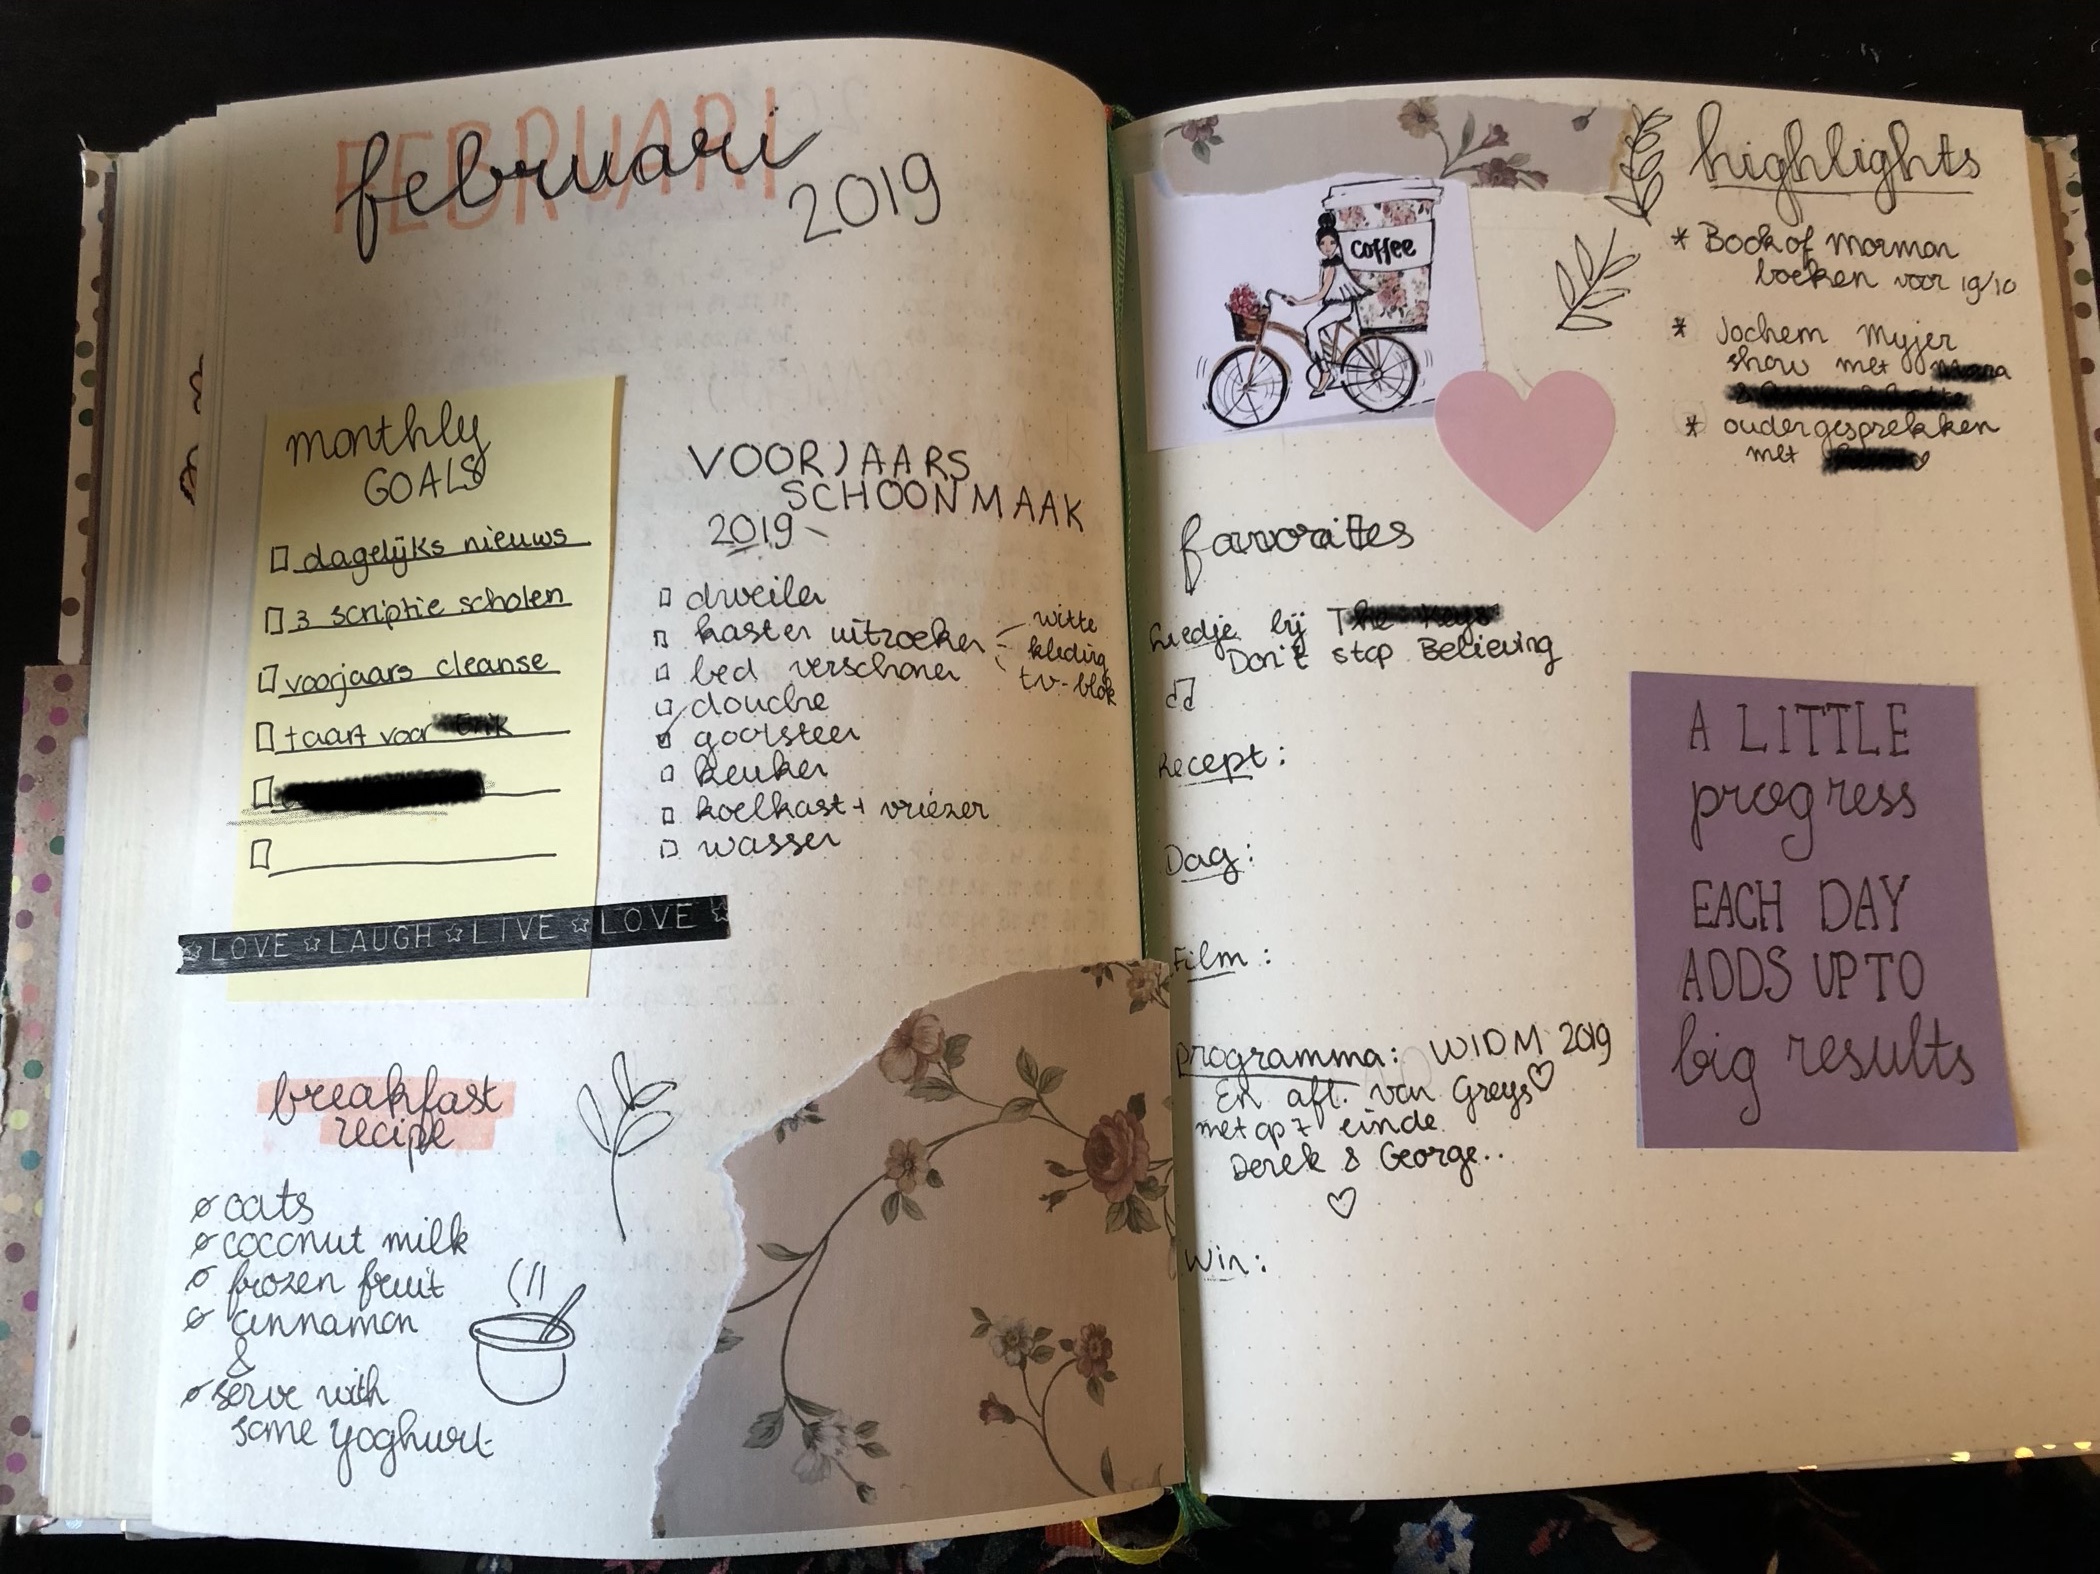 FEBRUARI
februari
2019
monthly
GOALS
dagelijks nieuws
3 scriptie scholen
voorjaars cleanse
taart voor
LOVE LAUGH LIVE LOVE
VOORJAARS
SCHOONMAAK
2019
dweilen
kasten uitzoeken
witte
kleding
tv-blok
bed verschonen
douche
gootsteen
keuken
koelkast + vriezer
wassen
breakfast
recipe
oats
coconut milk
frozen fruit
cinnamon
&
serve with
some yoghurt
coffee
highlights
* Book of Morman
boeken voor 19/10
* Jochem Myjer
show met
&
* oudergesprekken
met
favorites
Liedje bij
Don't stop Believing
Recept:
Dag:
Film:
programma: WIDM 2019
En afl. van Greys
met op 't einde
Derek & George..
Win:
A LITTLE
progress
EACH DAY
ADDS UP TO
big results